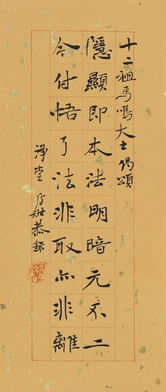 十二祖馬鳴大士偈頌
隱顯即本法明暗元不二
今付悟了法非取亦非離
淨堂 恭錄